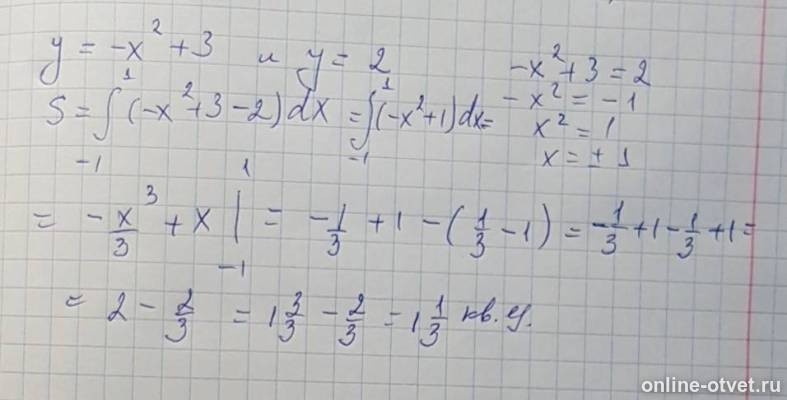 y = -x² + 3 и y = 2
-x² + 3 = 2
-x² = -1
x² = 1
x = ± 1
S = ∫₋₁¹ (-x² + 3 - 2) dx = ∫₋₁¹ (-x² + 1) dx =
= -x³/3 + x |₋₁¹ = -1/3 + 1 - (1/3 - 1) = -1/3 + 1 - 1/3 + 1 =
= 2 - 2/3 = 1 3/3 - 2/3 = 1 1/3 кв. ед.
online-otvet.ru